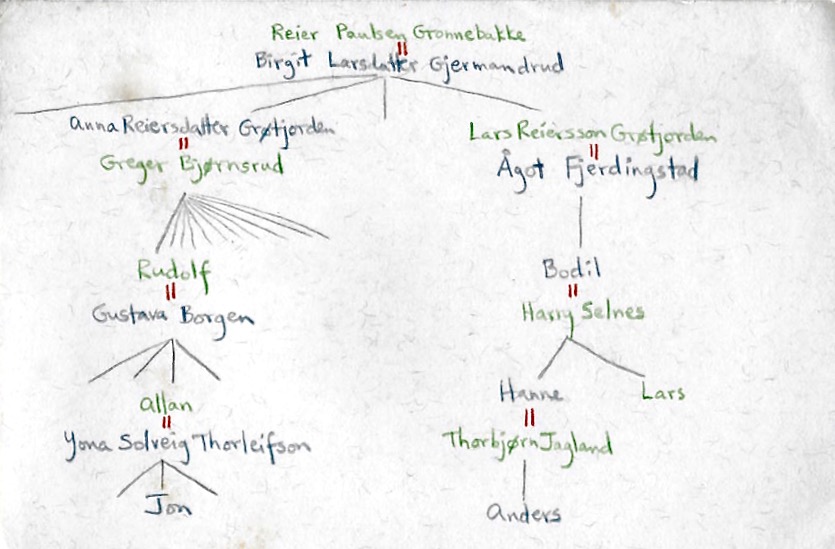 Reier Paulsen Grønnebakke
Birgit Larsdatter Gjermandrud
Anna Reiersdatter Grøtjorden
Greger Bjørnsrud
Rudolf
Gustava Borgen
Allan
Yona Solveig Thorleifson
Jon
Lars Reiersson Grøtjorden
Ågot Fjerdingstad
Bodil
Harry Selnes
Hanne
Lars
Thorbjørn Jagland
Anders